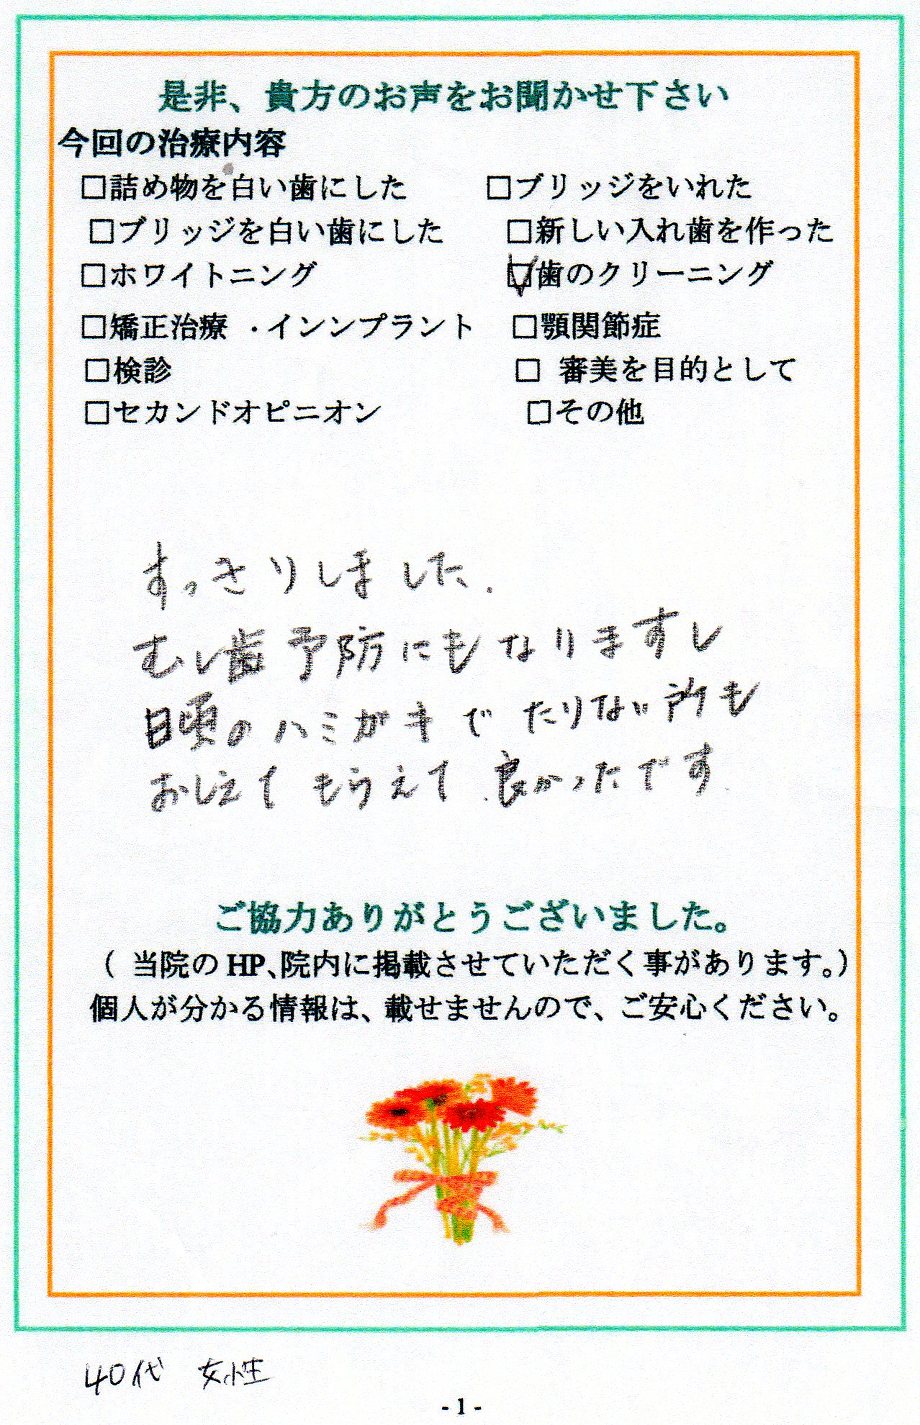 是非、貴方のお声をお聞かせ下さい
今回の治療内容
□詰め物を白い歯にした □ブリッジをいれた
□ブリッジを白い歯にした □新しい入れ歯を作った
□ホワイトニング ☑歯のクリーニング
□矯正治療 ・インンプラント □顎関節症
□検診 □ 審美を目的として
□セカンドオピニオン □その他
すっきりしました.
むし歯予防にもなりますし
日頃のハミガキで たりない所も
おしえて もらえて 良かったです
ご協力ありがとうございました。
( 当院の HP、院内に掲載させていただく事があります。)
個人が分かる情報は、載せませんので、ご安心ください。
40代 女性
- 1 -